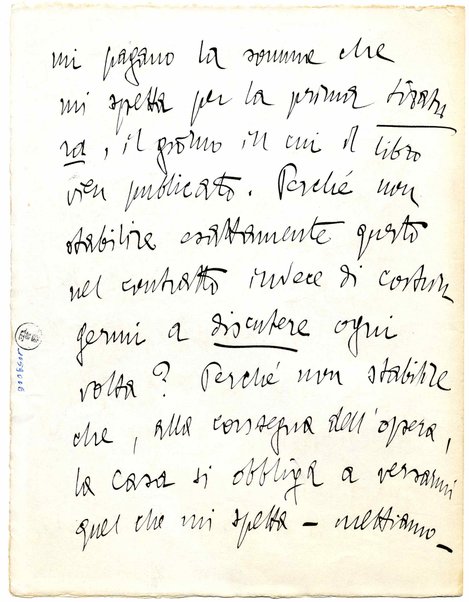 mi pagano la somma che
mi spetta per la prima tiratu
ra, il giorno in cui il libro
vien publicato. Perché non
stabilire esattamente questo
nel contratto invece di costrin
germi a discutere ogni
volta? Perché non stabilire
che, alla consegna dell'opera,
la casa si obbliga a versarmi
quel che mi spetta — mettiamo —